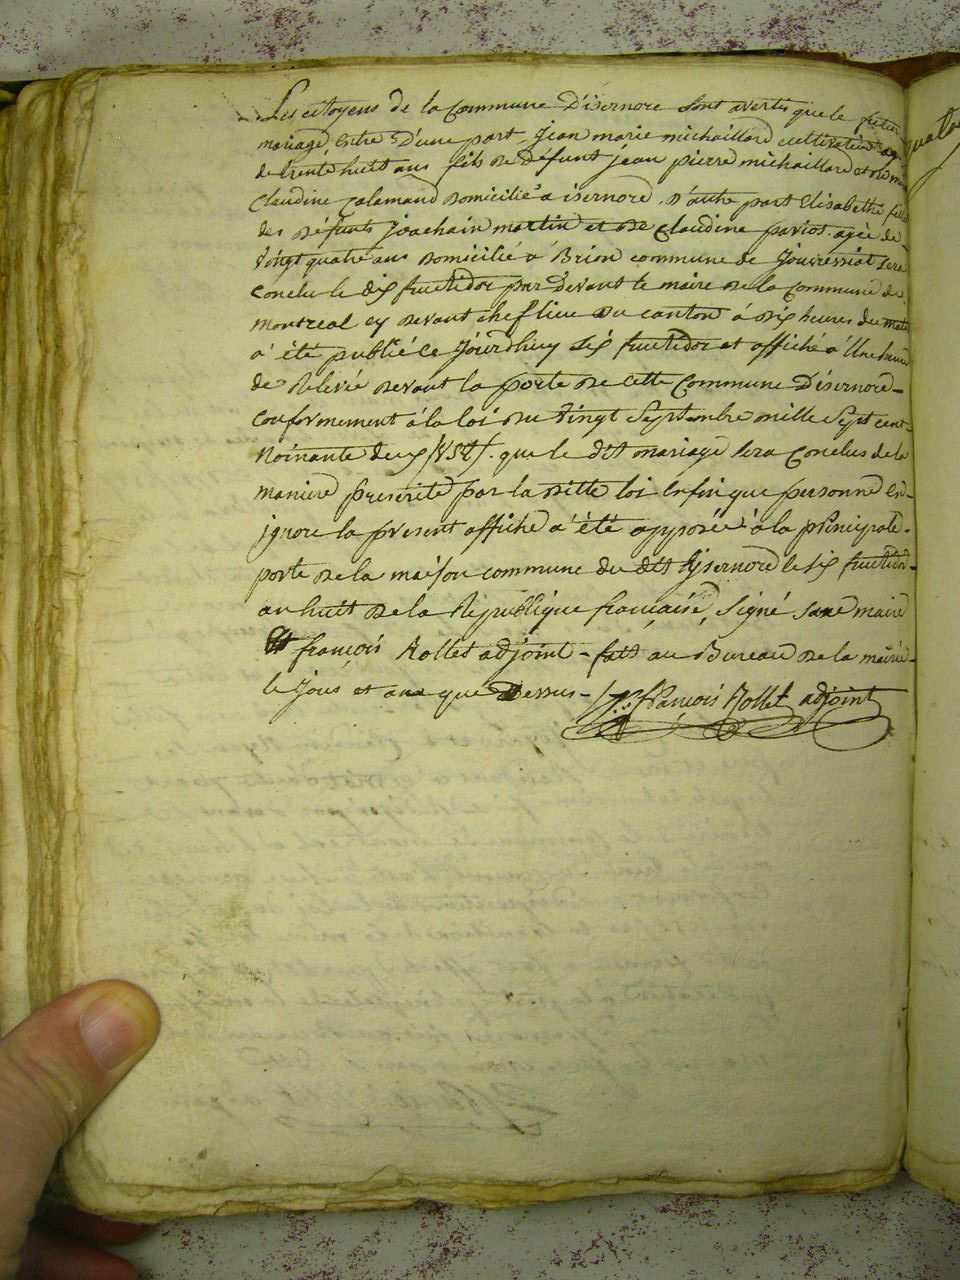 Les citoyens de la Commune D'isernore sont avertis que le futur
mariage Entre D'une part Jean marie michaillard cultivateur
de trente huit ans fils de Défunt jean pierre michaillard et de
Claudine jalamand Domicilié a isernore, D'autre part Elisabethe fille
des Défunts joachain martin et de Claudine pavios. agée de
Vingt quatre ans Domicilié á Brion commune de Jouvressiat sera
Conclu le dix fructidor par Devant le maire de la Commune de
montreal ey Devant cheflieu Du canton á Dix heures du matin
a' été publié ce Jourdhuy six fructidor et affiché a' Une heure
de Relevée Devant la porte de cette Commune D'isernore
Conformement á la loi Du Vingt Septembre mille Sept cent
Noinante deux /1852/. que le dit mariage sera Conclus de la
maniere prescrite par la ditte loi Enfin que personne En
ignore la present affiche a' été apposée á la principale
porte de la maison commune du dit Isernore le six fructidor
an huit de la République française, Signé maire
Et françois Rollet adjoint - fait au Bureau de la mairie
le jour et an que Dessus - françois Rollet adjoint